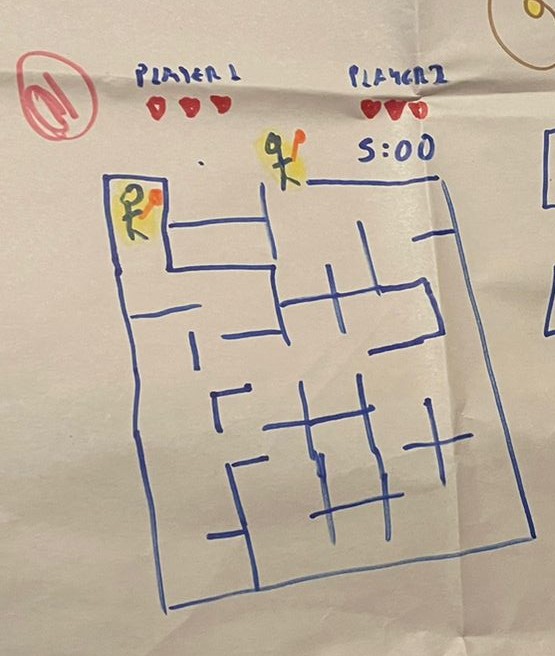 PLAYER 1
PLAYER 2
5:00